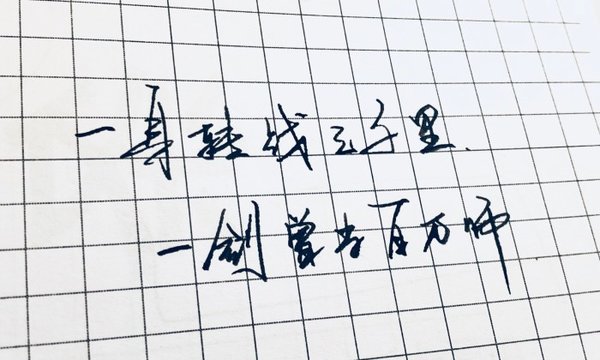 一身转战三千里.
一剑曾当百万师